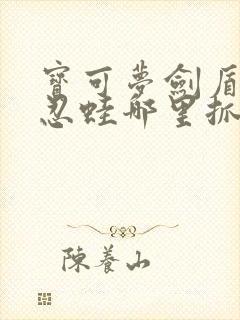 寶可夢劍盾
忍蛙哪里抓
陳養山